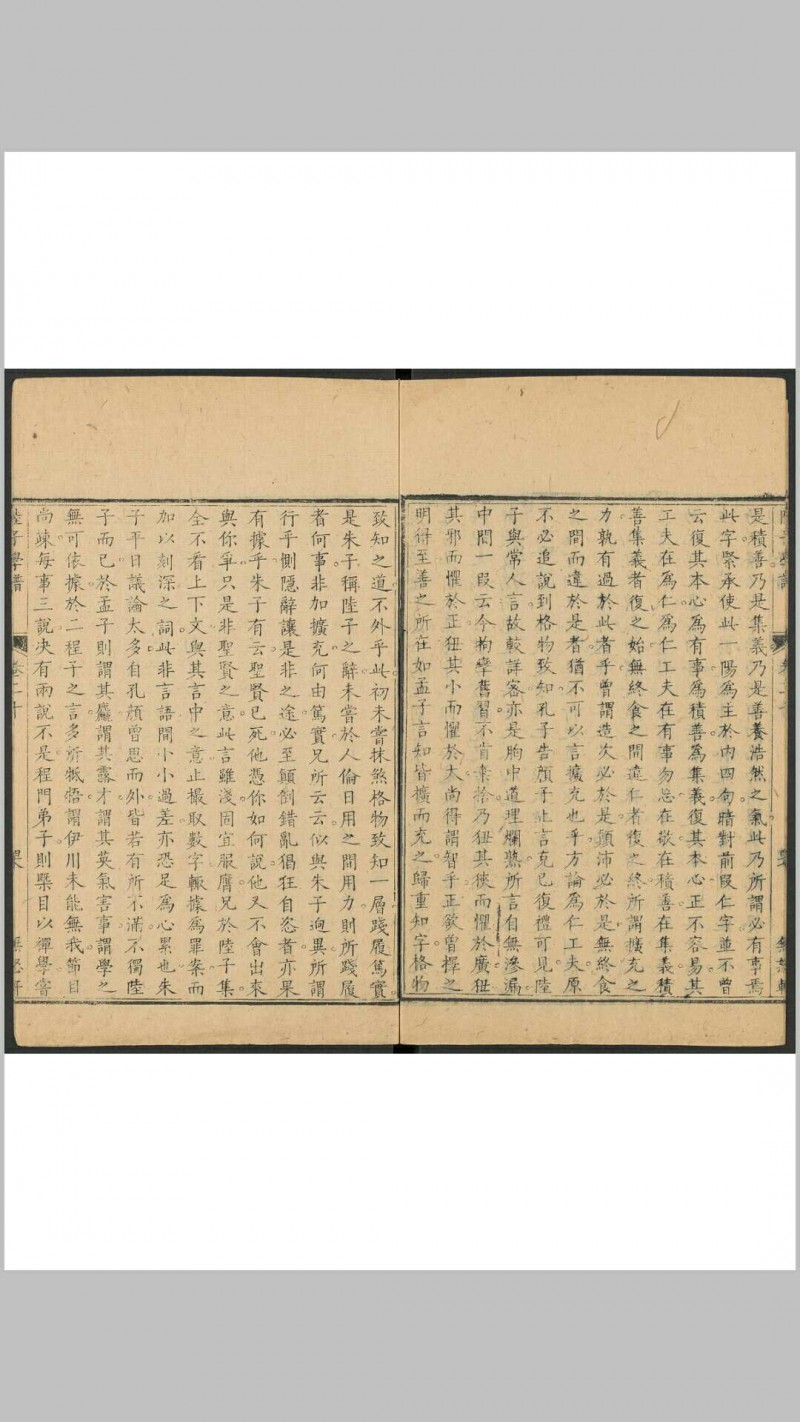 是積善乃是集義乃是善養浩然之氣此乃所謂必有事焉
此字緊承使此一陽爲主於内四句暗對前段仁字並不曾
云復其本心爲有事爲積善爲集義復其本心正不容易其
工夫在爲仁爲仁工夫在有事勿忘在敬在積善在集義積
善集義者復之始無終食之間違仁者復之終所謂擴充之
力孰有過於此者乎曾謂造次必於是顛沛必於是無終食
之間而違於是者猶不可以言擴充也乎方論爲仁工夫原
不必追說到格物致知孔子告顔子止言克己復禮可見陸
子與常人言故較詳容亦是胸中道理爛熟所言自無滲漏
中間一段云今拘孿舊習不肯棄捨乃狃其狹而懼於廣狃
其邪而懼於正狃其小而懼於大尚得謂智乎正欲曾擇之
明得至善之所在如孟子言知皆擴而充之歸重知字格物
致知之道不外乎此初未嘗抹煞格物致知一層踐履篤實
是朱子稱陸子之辭未嘗於人倫日用之間用力則所踐履
者何事非加擴充何由篤實兄所云云似與朱子逈異所謂
行乎惻隱辭讓是非之途必至顛倒錯亂猖狂自恣者亦果
有據乎朱子有云聖賢已死他憑你如何說他又不會出來
與你爭只是非聖賢之意此言雖淺固宜服膺兄於陸子集
全不看上下文與其言中之意止撮取數字輒據爲罪案而
加以刻深之詞此非言語間小小過差亦恐足爲心累也朱
子平日議論太多自孔顔曾思而外皆若有所不滿不獨陸
子而已於孟子則謂其麤謂其露才謂其英氣害事謂學之
無可依據於二程子之言多所牴牾謂伊川未能無我節目
尚疎每事三說决有兩說不是程門弟子則槩目以禪學甯
陸子學譜
卷二十
無怒軒